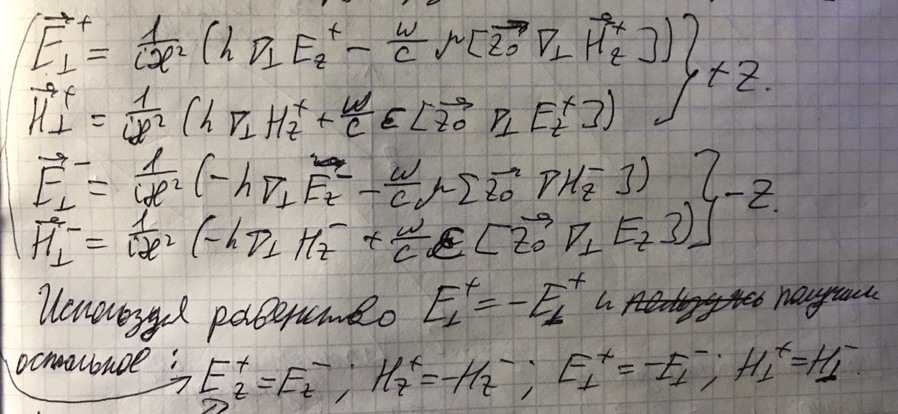 E⃗⊥⁺ = 1/(iæ²) (h ∇⊥ E_z⁺ − ω/c μ [z⃗₀ ∇⊥ H⃗_z⁺]) } + z.
H⃗⊥⁺ = 1/(iæ²) (h ∇⊥ H_z⁺ + ω/c ε [z⃗₀ ∇⊥ E_z⁺])
E⃗⊥⁻ = 1/(iæ²) (−h ∇⊥ E_z⁻ − ω/c μ [z⃗₀ ∇H_z⁻]) } − z.
H⃗⊥⁻ = 1/(iæ²) (−h ∇⊥ H_z⁻ + ω/c ε [z⃗₀ ∇⊥ E_z])
Используя равенство E⊥⁺ = −E⊥⁺ и получим
остальное : E_z⁺ = E_z⁻ ; H_z⁺ = −H_z⁻ ; E⊥⁺ = −E⊥⁻ ; H⊥⁺ = H⊥⁻.